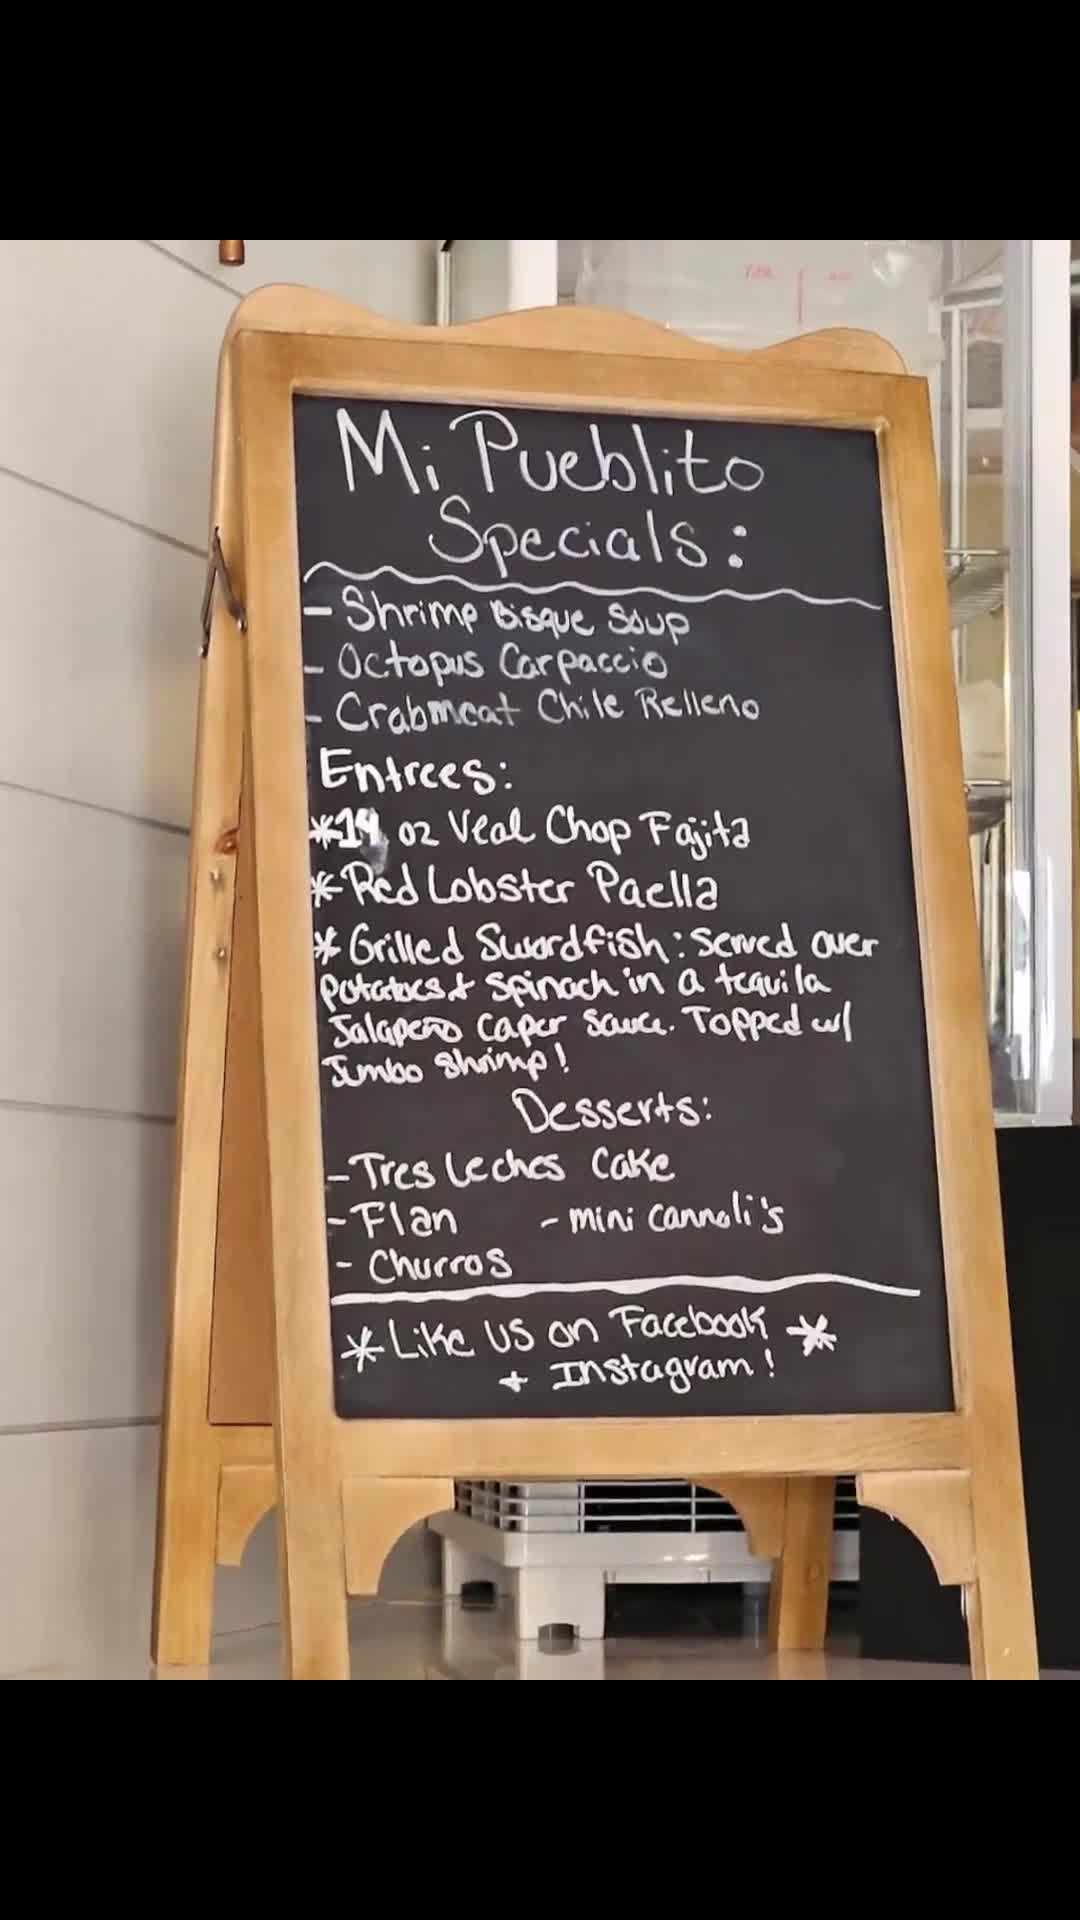 Mi Pueblito
Specials:
- Shrimp Bisque Soup
- Octopus Carpaccio
- Crabmeat Chile Relleno
Entrees:
*14 oz Veal Chop Fajita
* Red Lobster Paella
* Grilled Swordfish: Served over
Potatoes & Spinach in a tequila
Jalapeño Caper Sauce. Topped w/
Jumbo Shrimp!
Desserts:
- Tres Leches Cake
- Flan - mini cannoli's
- Churros
* Like us on Facebook *
+ Instagram!